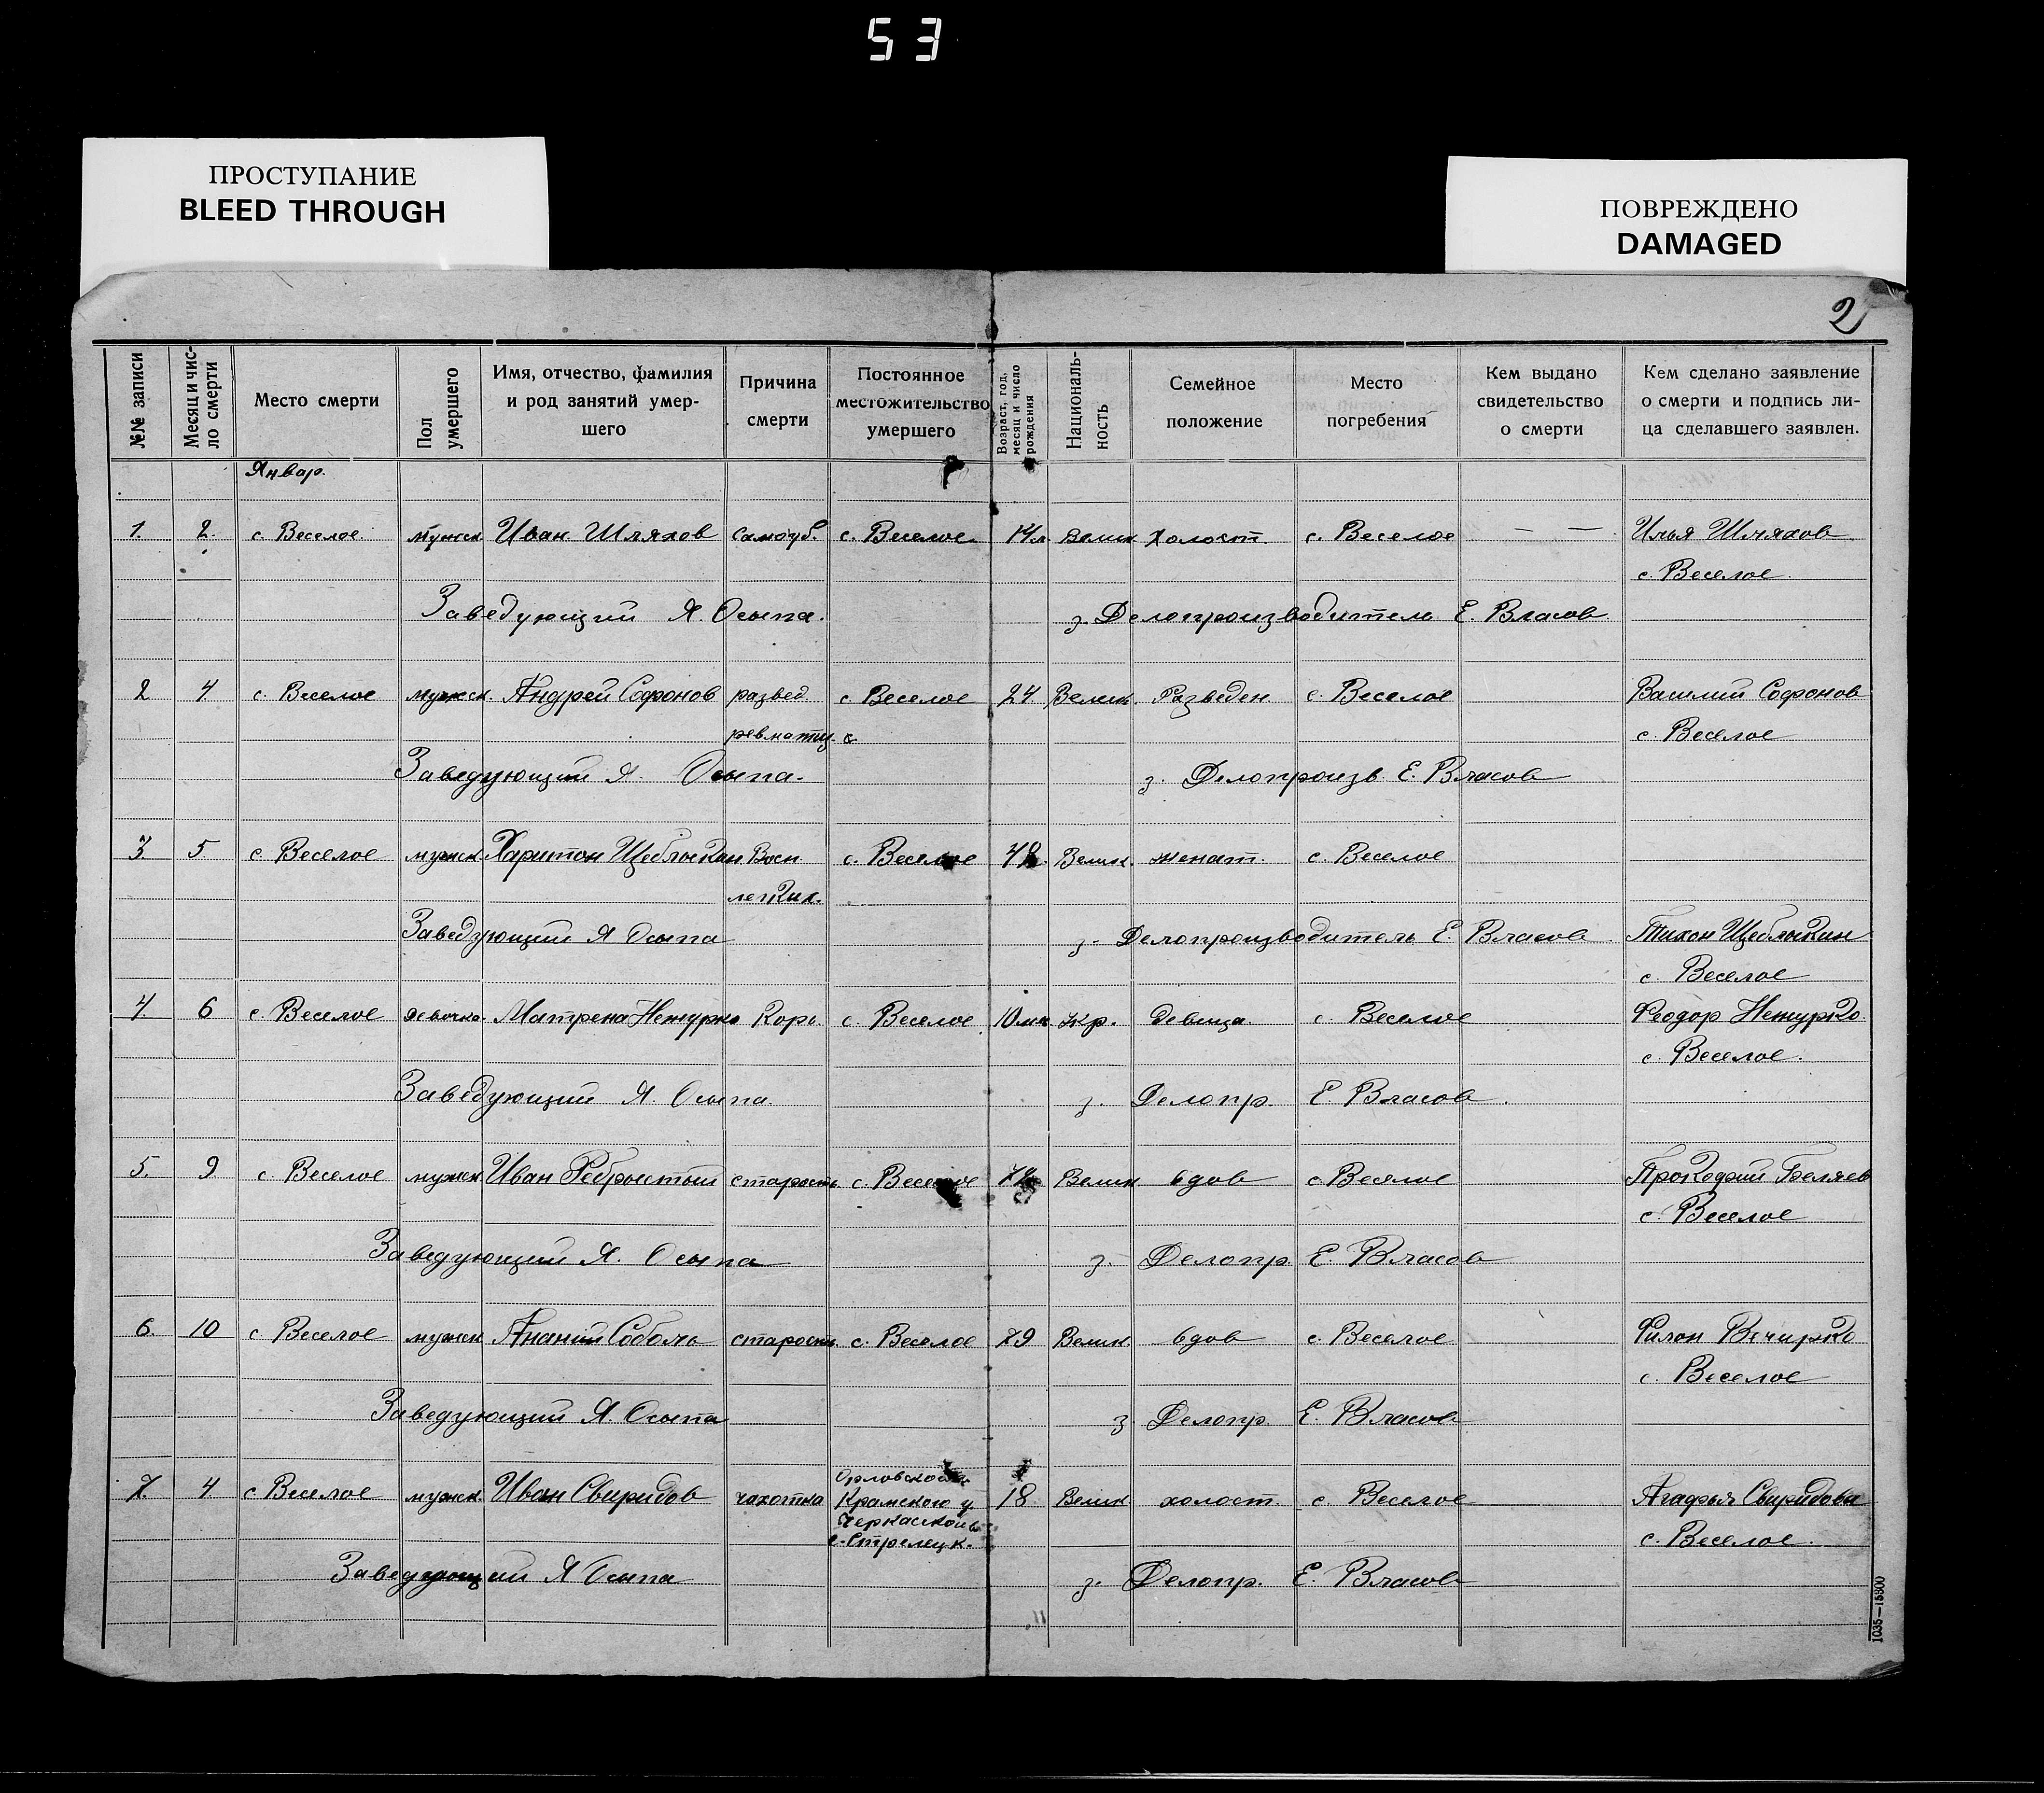 53
ПРОСТУПАНИЕ
BLEED THROUGH
ПОВРЕЖДЕНО
DAMAGED
2
№№ записи
Месяц и чис-
ло смерти
Место смерти
Пол
умершего
Имя, отчество, фамилия
и род занятий умер-
шего
Причина
смерти
Постоянное
местожительство
умершего
Возраст, год,
месяц и число
рождения
Националь-
ность
Семейное
положение
Место
погребения
Кем выдано
свидетельство
о смерти
Кем сделано заявление
о смерти и подпись ли-
ца сделавшего заявлен.
Январ.
1. 2. с. Веселое. мужск Иван Шляхов самоуб. с. Веселое 14л Велик Холост. с. Веселое — — Илья Шляхов
с. Веселое.
Заведующий Я. Осыпа. з. Делопроизводитель Е. Власов
2 4 с. Веселое мужск. Андрей Софонов развед. с. Веселое 24 Велик. Разведен с. Веселое Василий Софонов
ревматиз. с. Веселое
Заведующий Я. Осыпа. з. Делопроизв Е. Власов
3. 5 с. Веселое мужск Харитон Щеблыкин Восп. с. Веселое Велик. женат. с. Веселое
легких.
Заведующий Я Осыпа з. Делопроизводитель Е. Власов Тихон Щеблыкин
с. Веселое
4. 6 с. Веселое девочка. Матрена Нежурко Корь с. Веселое 10 мц Укр. девица. с. Веселое Феодор Нежурко
с. Веселое.
Заведующий Я. Осыпа. з. Делопр. Е Власов.
5. 9 с. Веселое мужск Иван Ребрыстый старость с. Веселое Велик вдов с. Веселое Прокофий Беляев
с. Веселое
Заведующий Я. Осыпа з. Делопр. Е. Власов
6. 10 с. Веселое мужск. Ананий Соболь старость. с. Веселое 79 Велик. вдов с. Веселое Филон Вечирко
с. Веселое
Заведующий Я. Осыпа з Делопр. Е. Власов
7. 4. с. Веселое мужск. Иван Свиридов чахотка Орловской г. 18 Велик холост. с. Веселое Агафья Свиридова
Крамского у.
Черкаской в.
с. Стрелецк. с. Веселое.
Заведующий Я Осыпа з. Делопр. Е. Власов
1035—15800